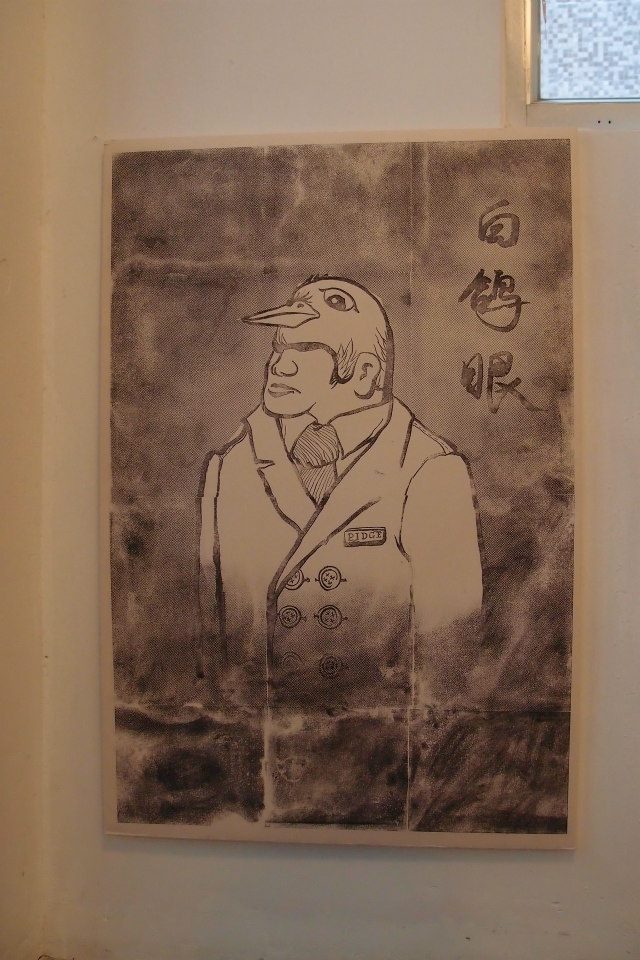 白鴿眼
PIDGE